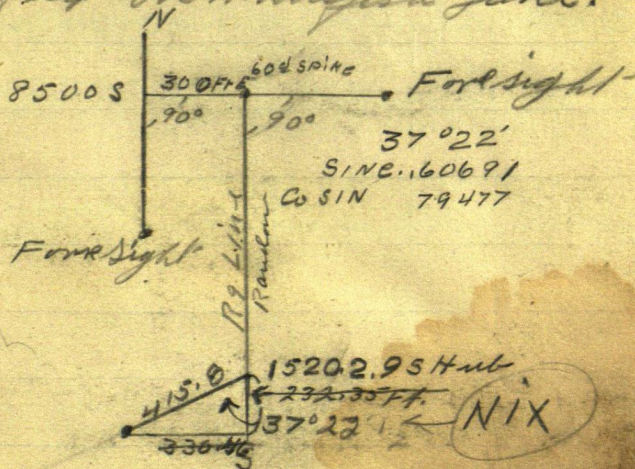 N
8500 S 300 Ft E 60d SPiKE Foresight
90° 90°
37°22'
SiNE .60691
Co SIN 79477
Foresight
Rg Line
Random
415.8 15202.9 S Hub
232.35 Ft.
37°22' NiX